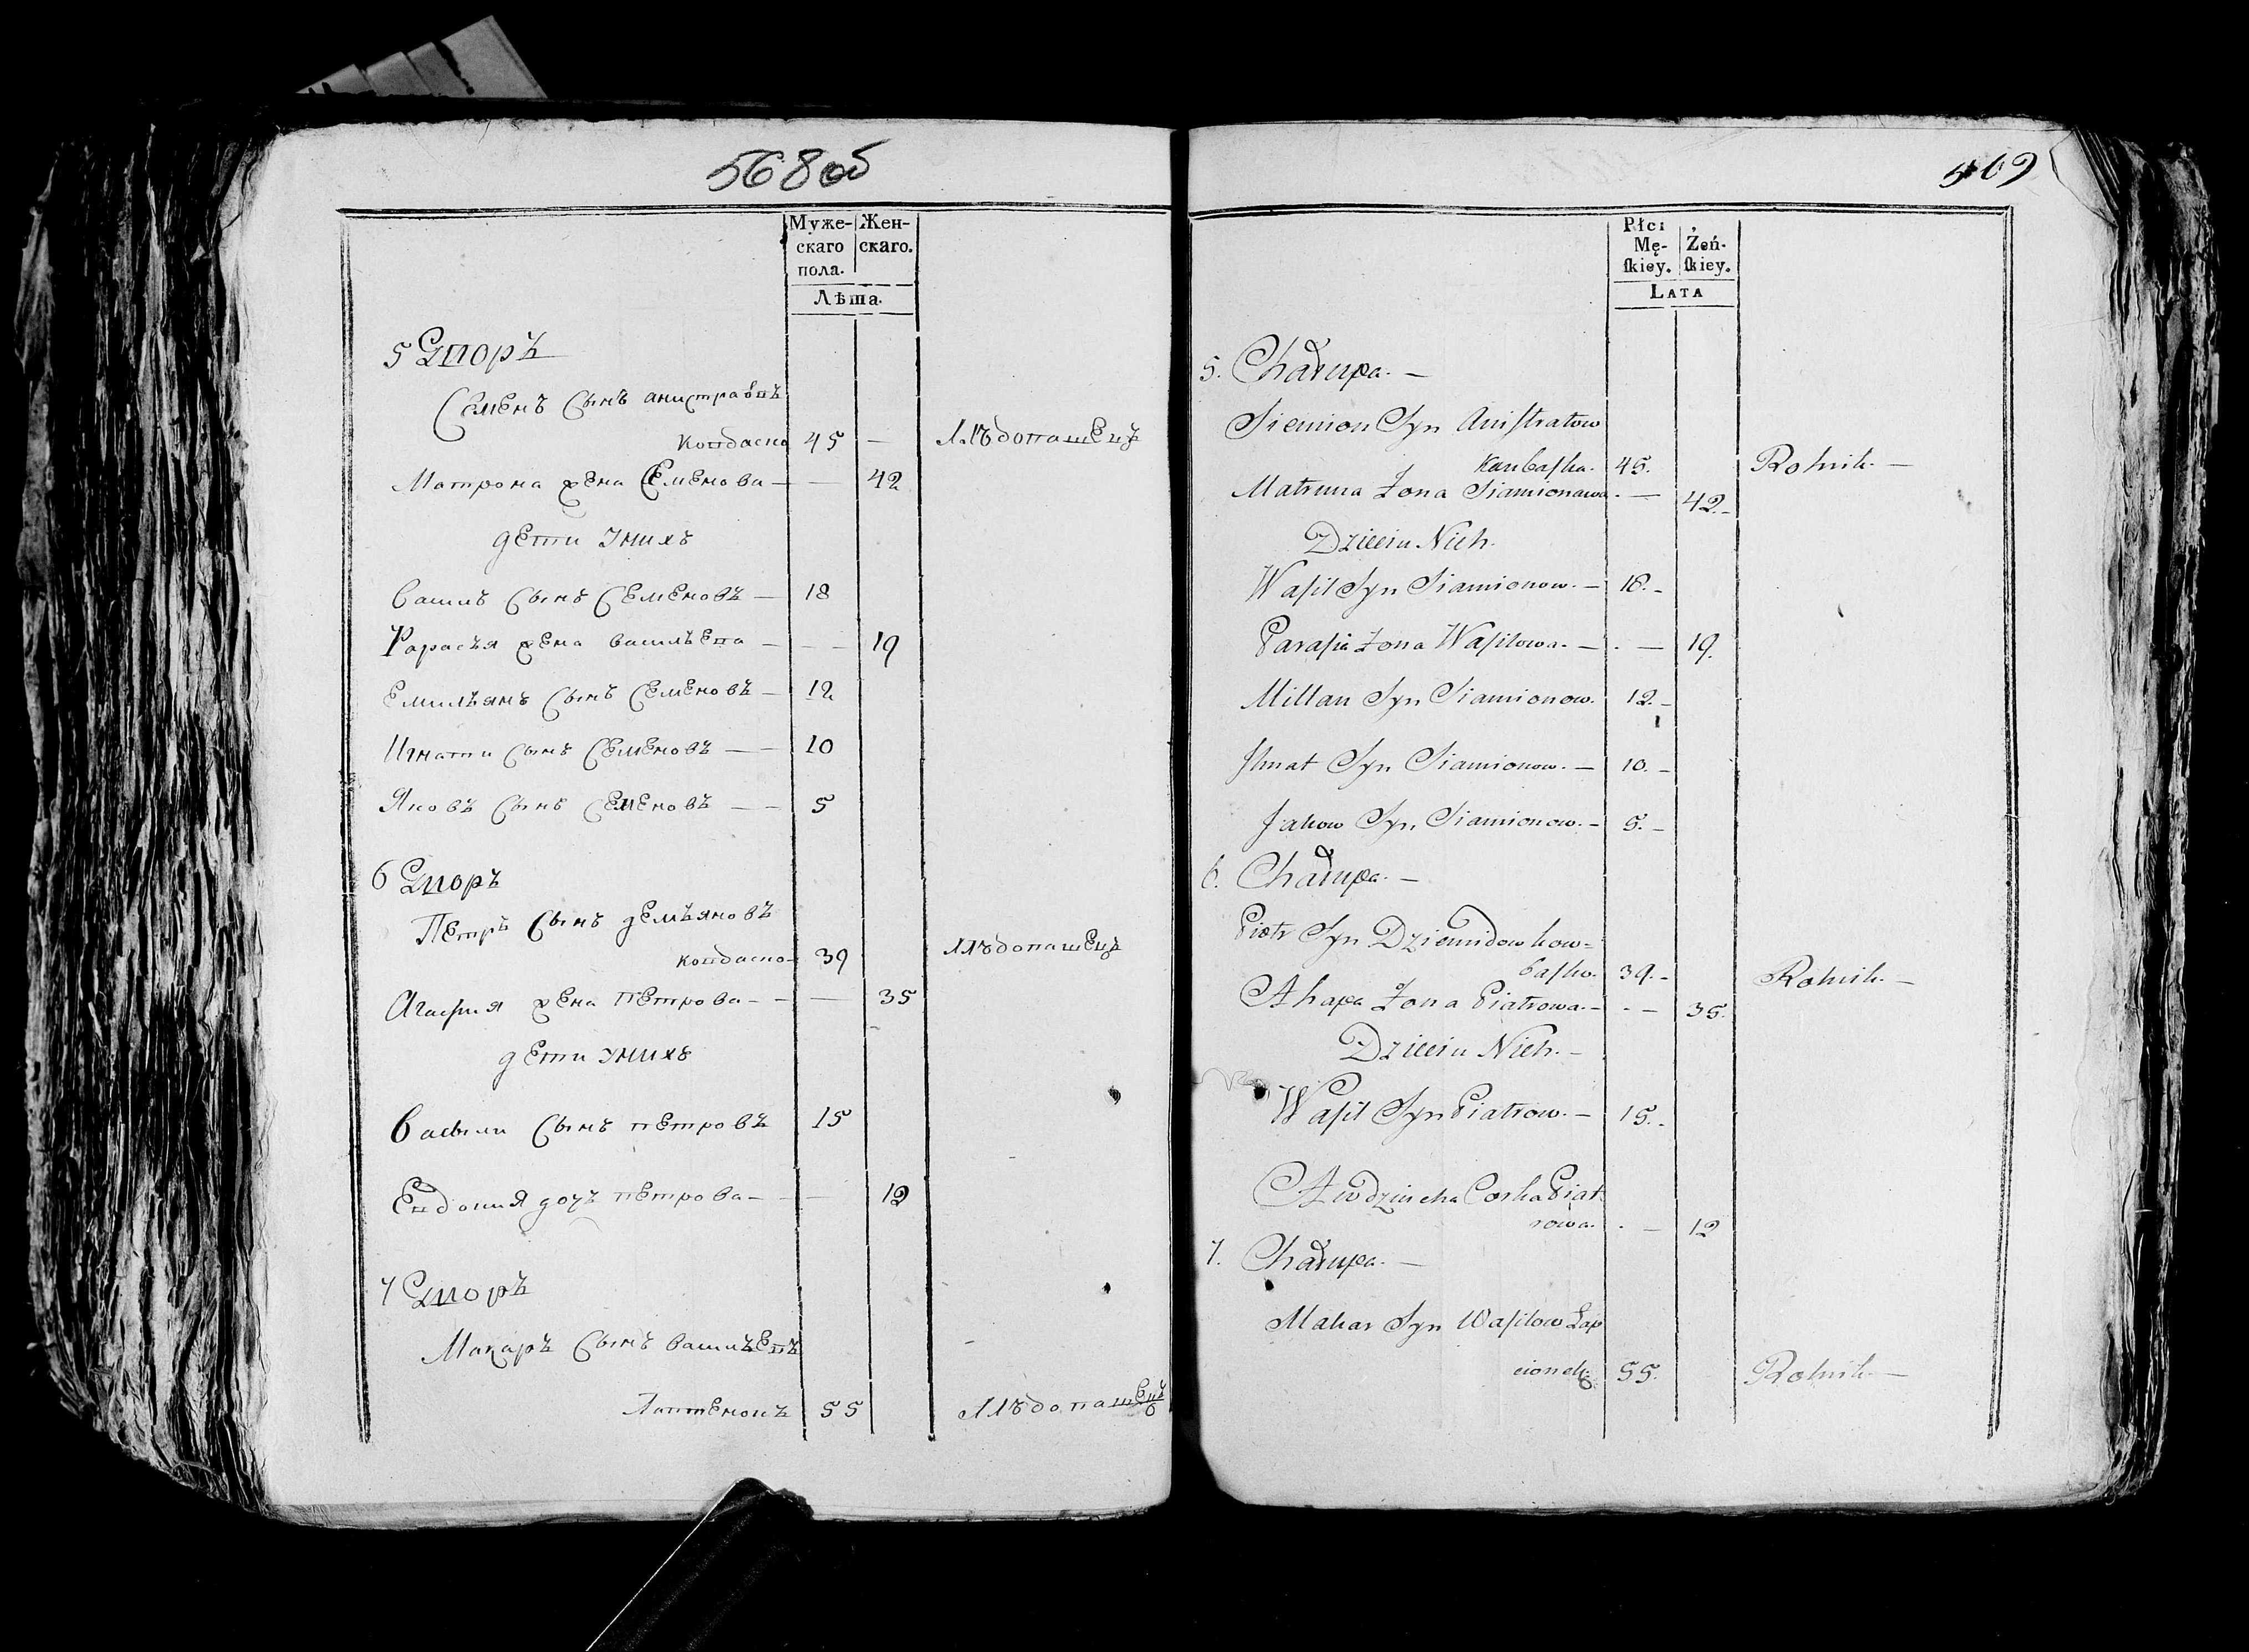 568 об
Муже-
скаго
пола.
Жен-
скаго.
Лѣта.
5 Дворъ
Семенъ Сынъ анистратвъ
Ковбаско 45 — Хлѣбопашецъ
Матрона жена Семенова — — 42
дети унихъ
василь Сынъ Семеновъ — 18
Парасья жена васильева — — — 19
Емильянъ Сынъ Семеновъ — 12
Игнати Сынъ Семеновъ — — 10
Яковъ Сынъ Семеновъ — — 5
6 Дворъ
Петръ Сынъ демьяновъ
ковбаско — 39 Хлѣбопашецъ
Агафия жена петрова — — — 35
дети унихъ
васили Сынъ петровъ 15
Евдокия дочъ петрова — — 12
7 Дворъ
Макаръ Сынъ васильевъ
55 Хлѣбопашецъ
569
Płci
Mę-
ſkiey.
Żeń-
ſkiey.
LATA
5. Chałupa. —
Siemion Syn Anistratow
Kaubaſka. 45. Rolnik. —
Matruna Żona Siamionawa. — 42. -
Dzieci u Nich.
Waſil Syn Siamionow. — 18. -
Paraſia Żona Waſilowa. — . — 19.
Millan Syn Siamionow. 12. -
Ihnat Syn Siamionow. — 10. -
Jakow Syn Siamionow. - 5. -
6. Chałupa. —
Piotr Syn Dziemidow kow-
baſko. 39. - Rolnik. —
Ahapa Żona Piatrowa. - . — 35.
Dzieci u Nich. —
Waſil Syn Piatrow. — 15. -
Awdziucha Corka Piat-
rowa. . — 12
7. Chałupa. —
Makar Syn Waſilow Łap
cionek. 55. Rolnik. —